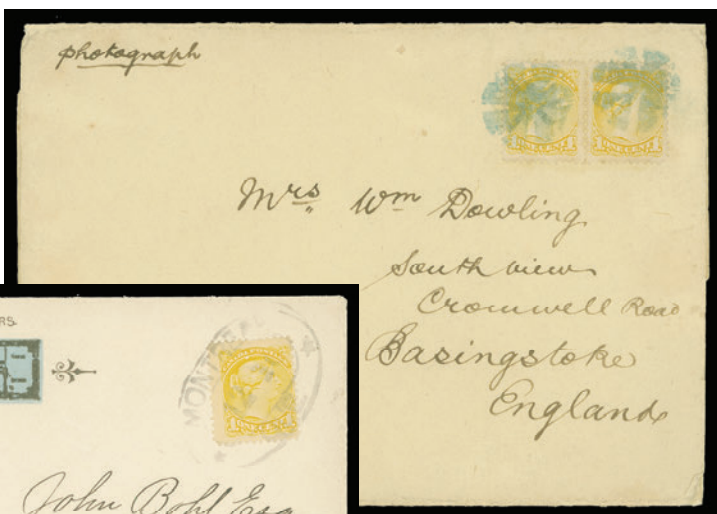 photograph
Mrs Wm Dowling
South view
Cromwell Road
Basingstoke
England
RS.
MONTREAL
ONE CENT
John Bohl Esq